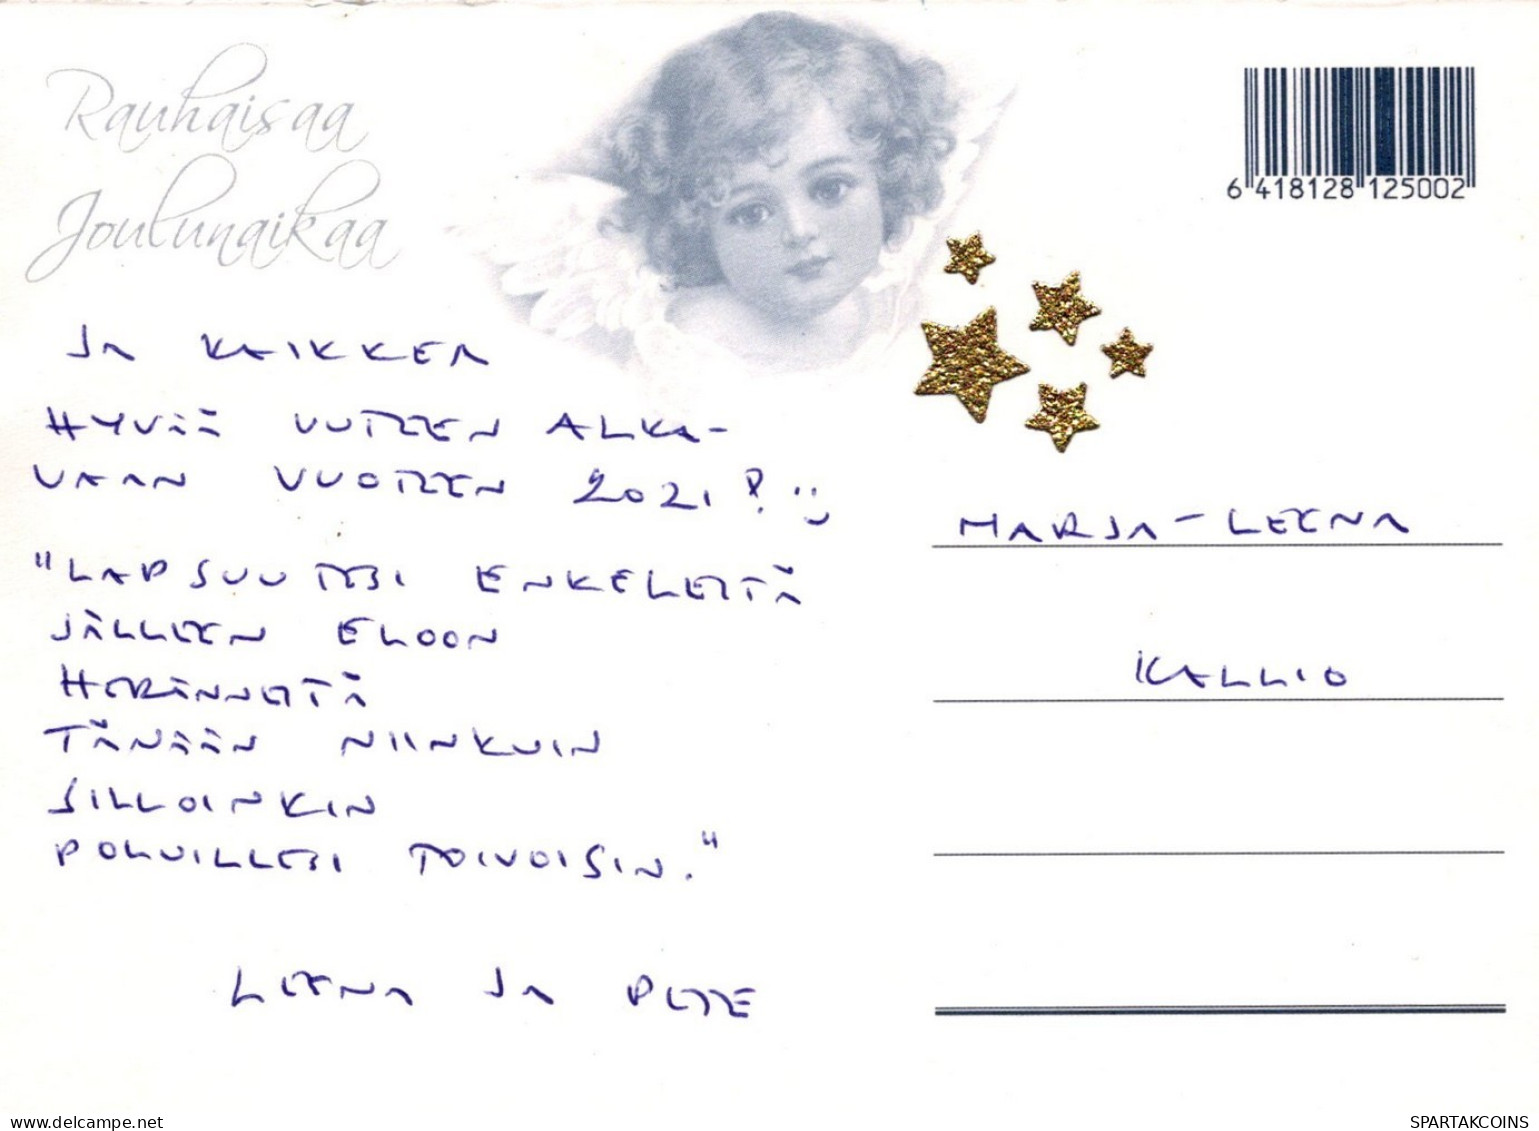 Rauhaisaa
Joulunaikaa
6 418128 125002
JA KAIKKEA
HYVÄÄ UUTEEN ALKA-
VAAN VUOTEEN 2021!
"LAPSUUTESI ENKELEITÄ
JÄLLEEN ELOON
HERÄNNEITÄ
TÄNÄÄN NIINKUIN
SILLOINKIN
POLVILLESI TOIVOISIN."
LEENA JA PETE
MARJA-LEENA
KALLIO
delcampe.net
SPARTAKCOINS